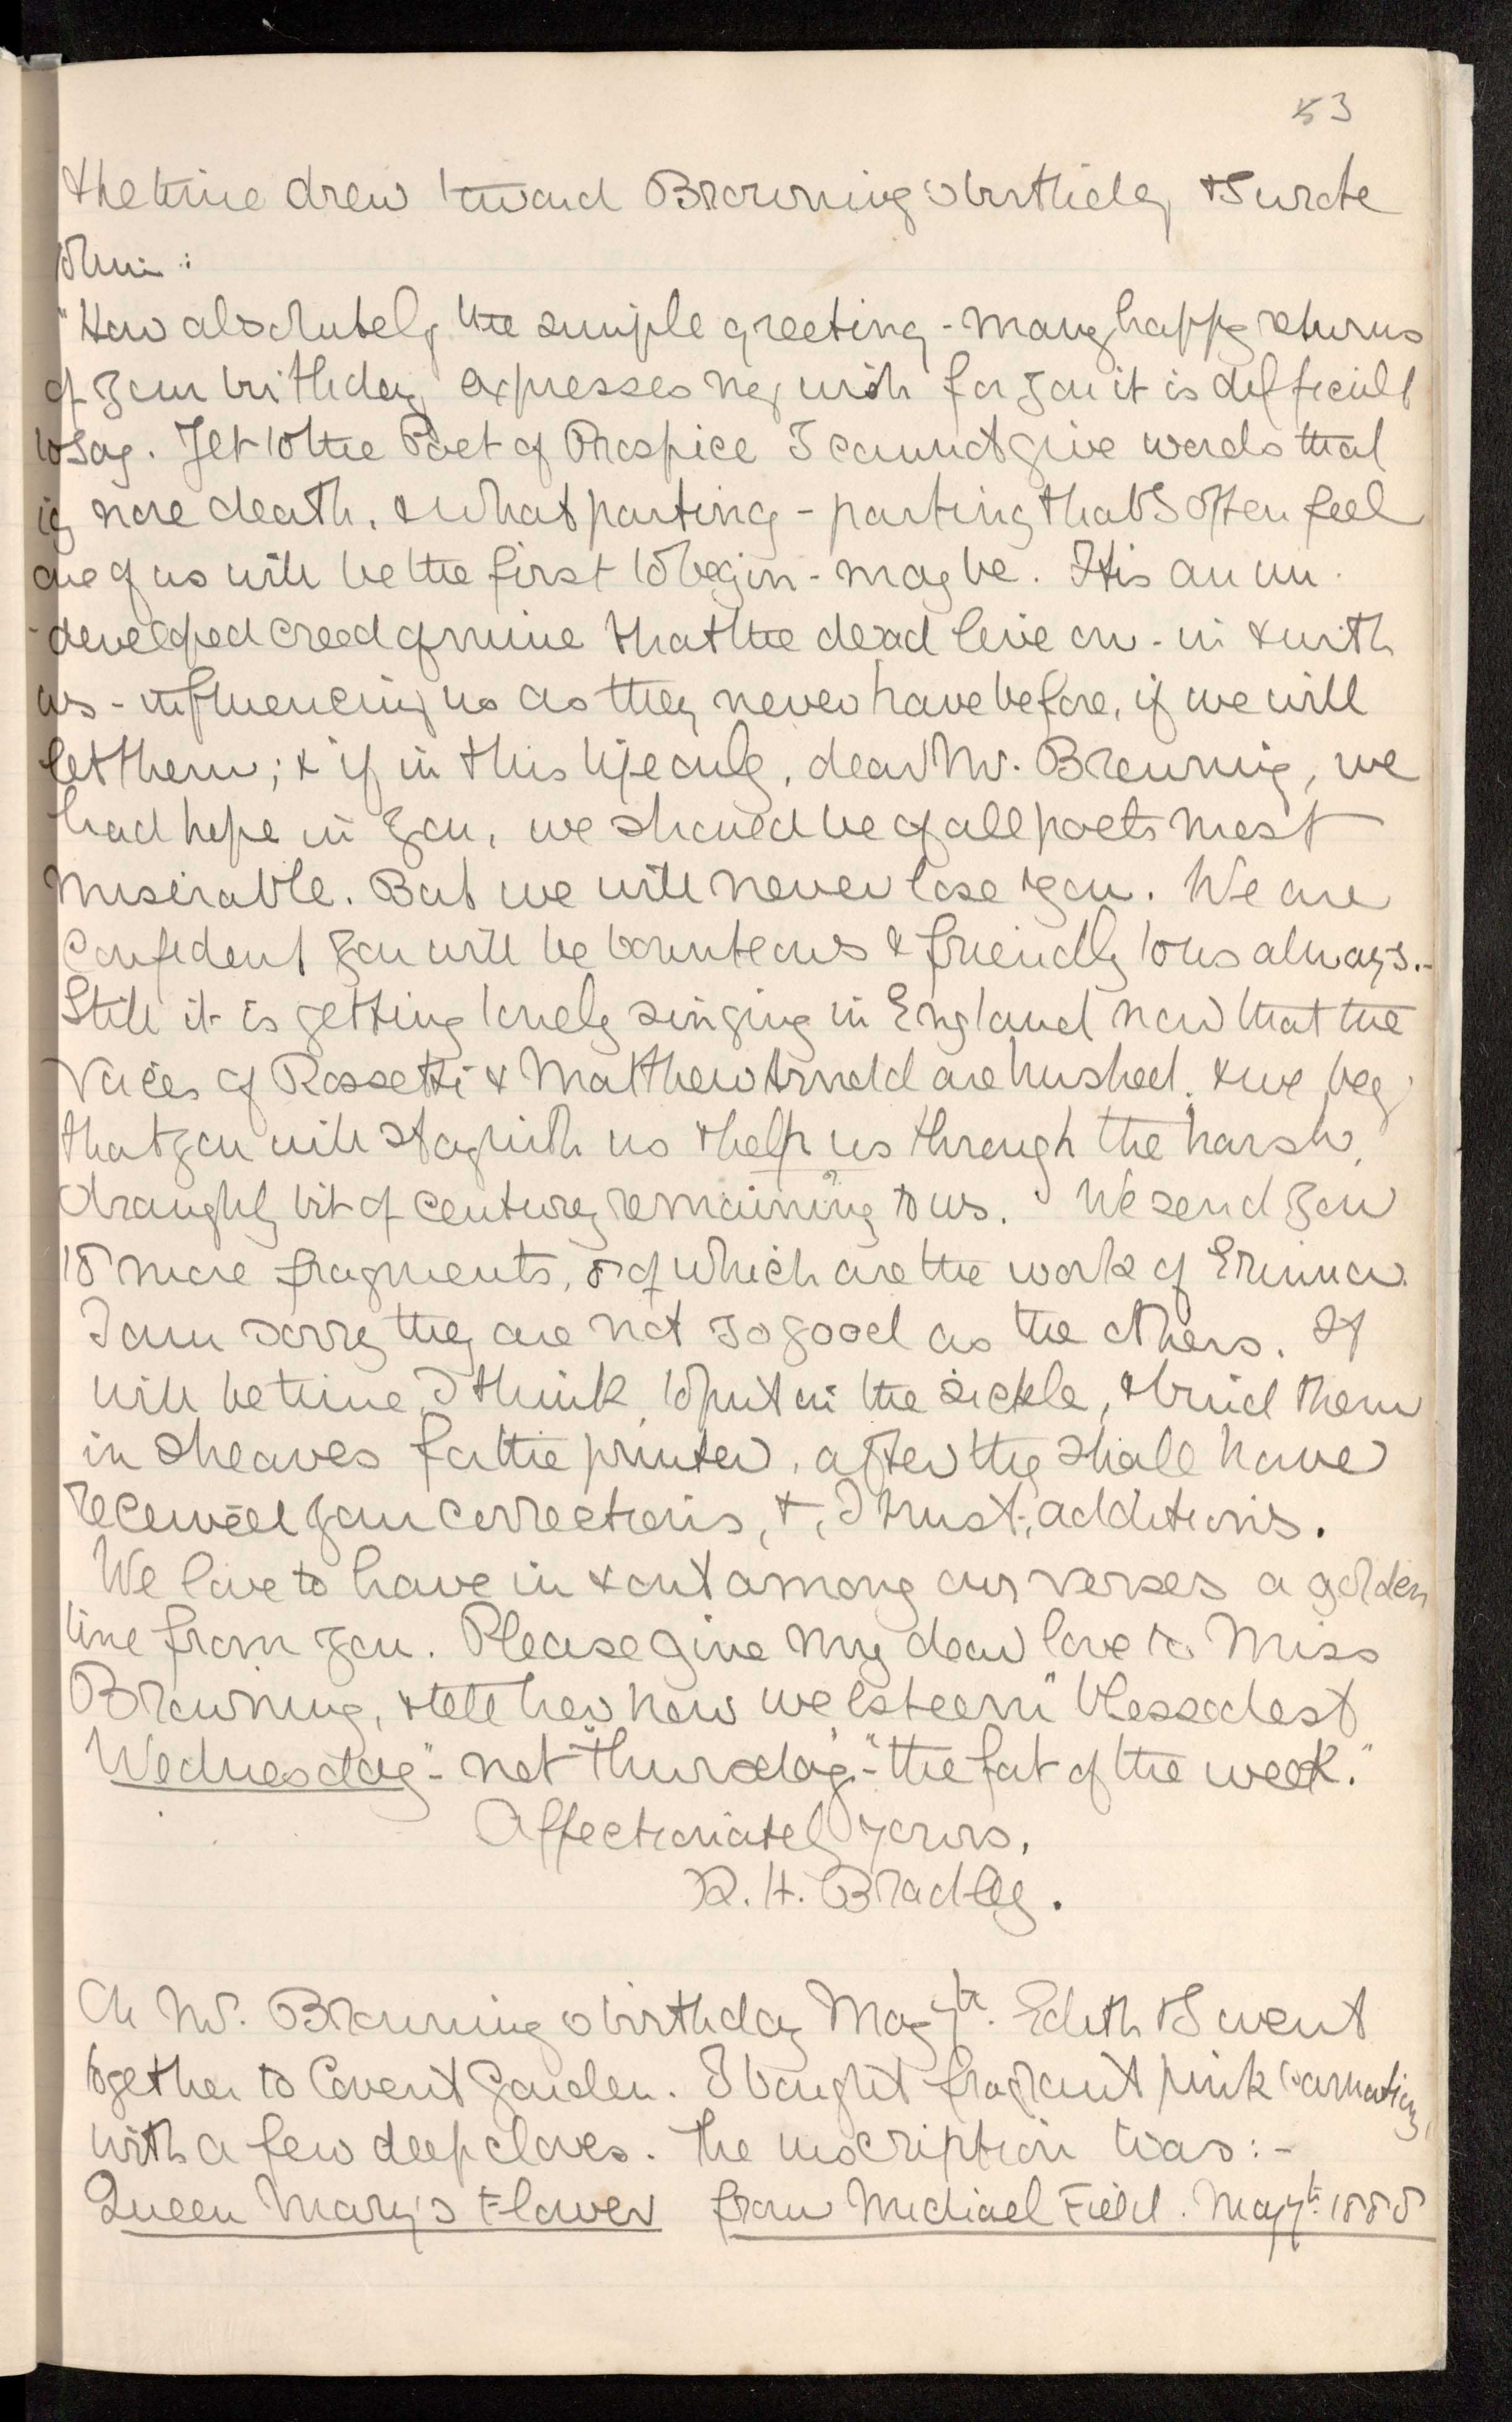 53
& the time drew toward Browning's birthday & I wrote
to him:
"How absolutely the simple greeting - many happy returns
of your birthday expresses my wish for you it is difficult
to say. Yet to the Poet of Prospice I cannot give words that
ig nore death, & what parting - parting that I often feel
one of us will be the first to begin - may be. It is an un-
-developed creed of mine that the dead live on - in & with
us - influencing us as they never have before, if we will
let them; & if in this life only, dear Mr. Browning, we
had hope in you, we should be of all poets most
miserable. But we will never lose you. We are
confident you will be bounteous & friendly to us always. -
Still it is getting lonely singing in England now that the
voices of Rossetti & Matthew Arnold are hushed, & we beg
that you will stay with us & help us through the harsh,
draughty bit of century remaining to us. We send you
18 more fragments, 8 of which are the work of Erinna.
I am sorry they are not so good as the others. It
will be time, I think, to put in the sickle, & bind them
in sheaves for the printer, after they shall have
received your corrections, &, I trust, additions.
We love to have in & out among our verses a golden
line from you. Please give my dear love to Miss
Browning, & tell her how we esteem "blessedest
Wednesday" - not "Thursday" - "the fat of the week."
Affectionately yours,
K. H. Bradley.
On Mr. Browning's birthday May 7th. Edith & I went
together to Covent Garden. I bought fragrant pink carnations,
with a few deep cloves. The inscription was: -
Queen Mary's Flower from Michael Field. May 7th 1888